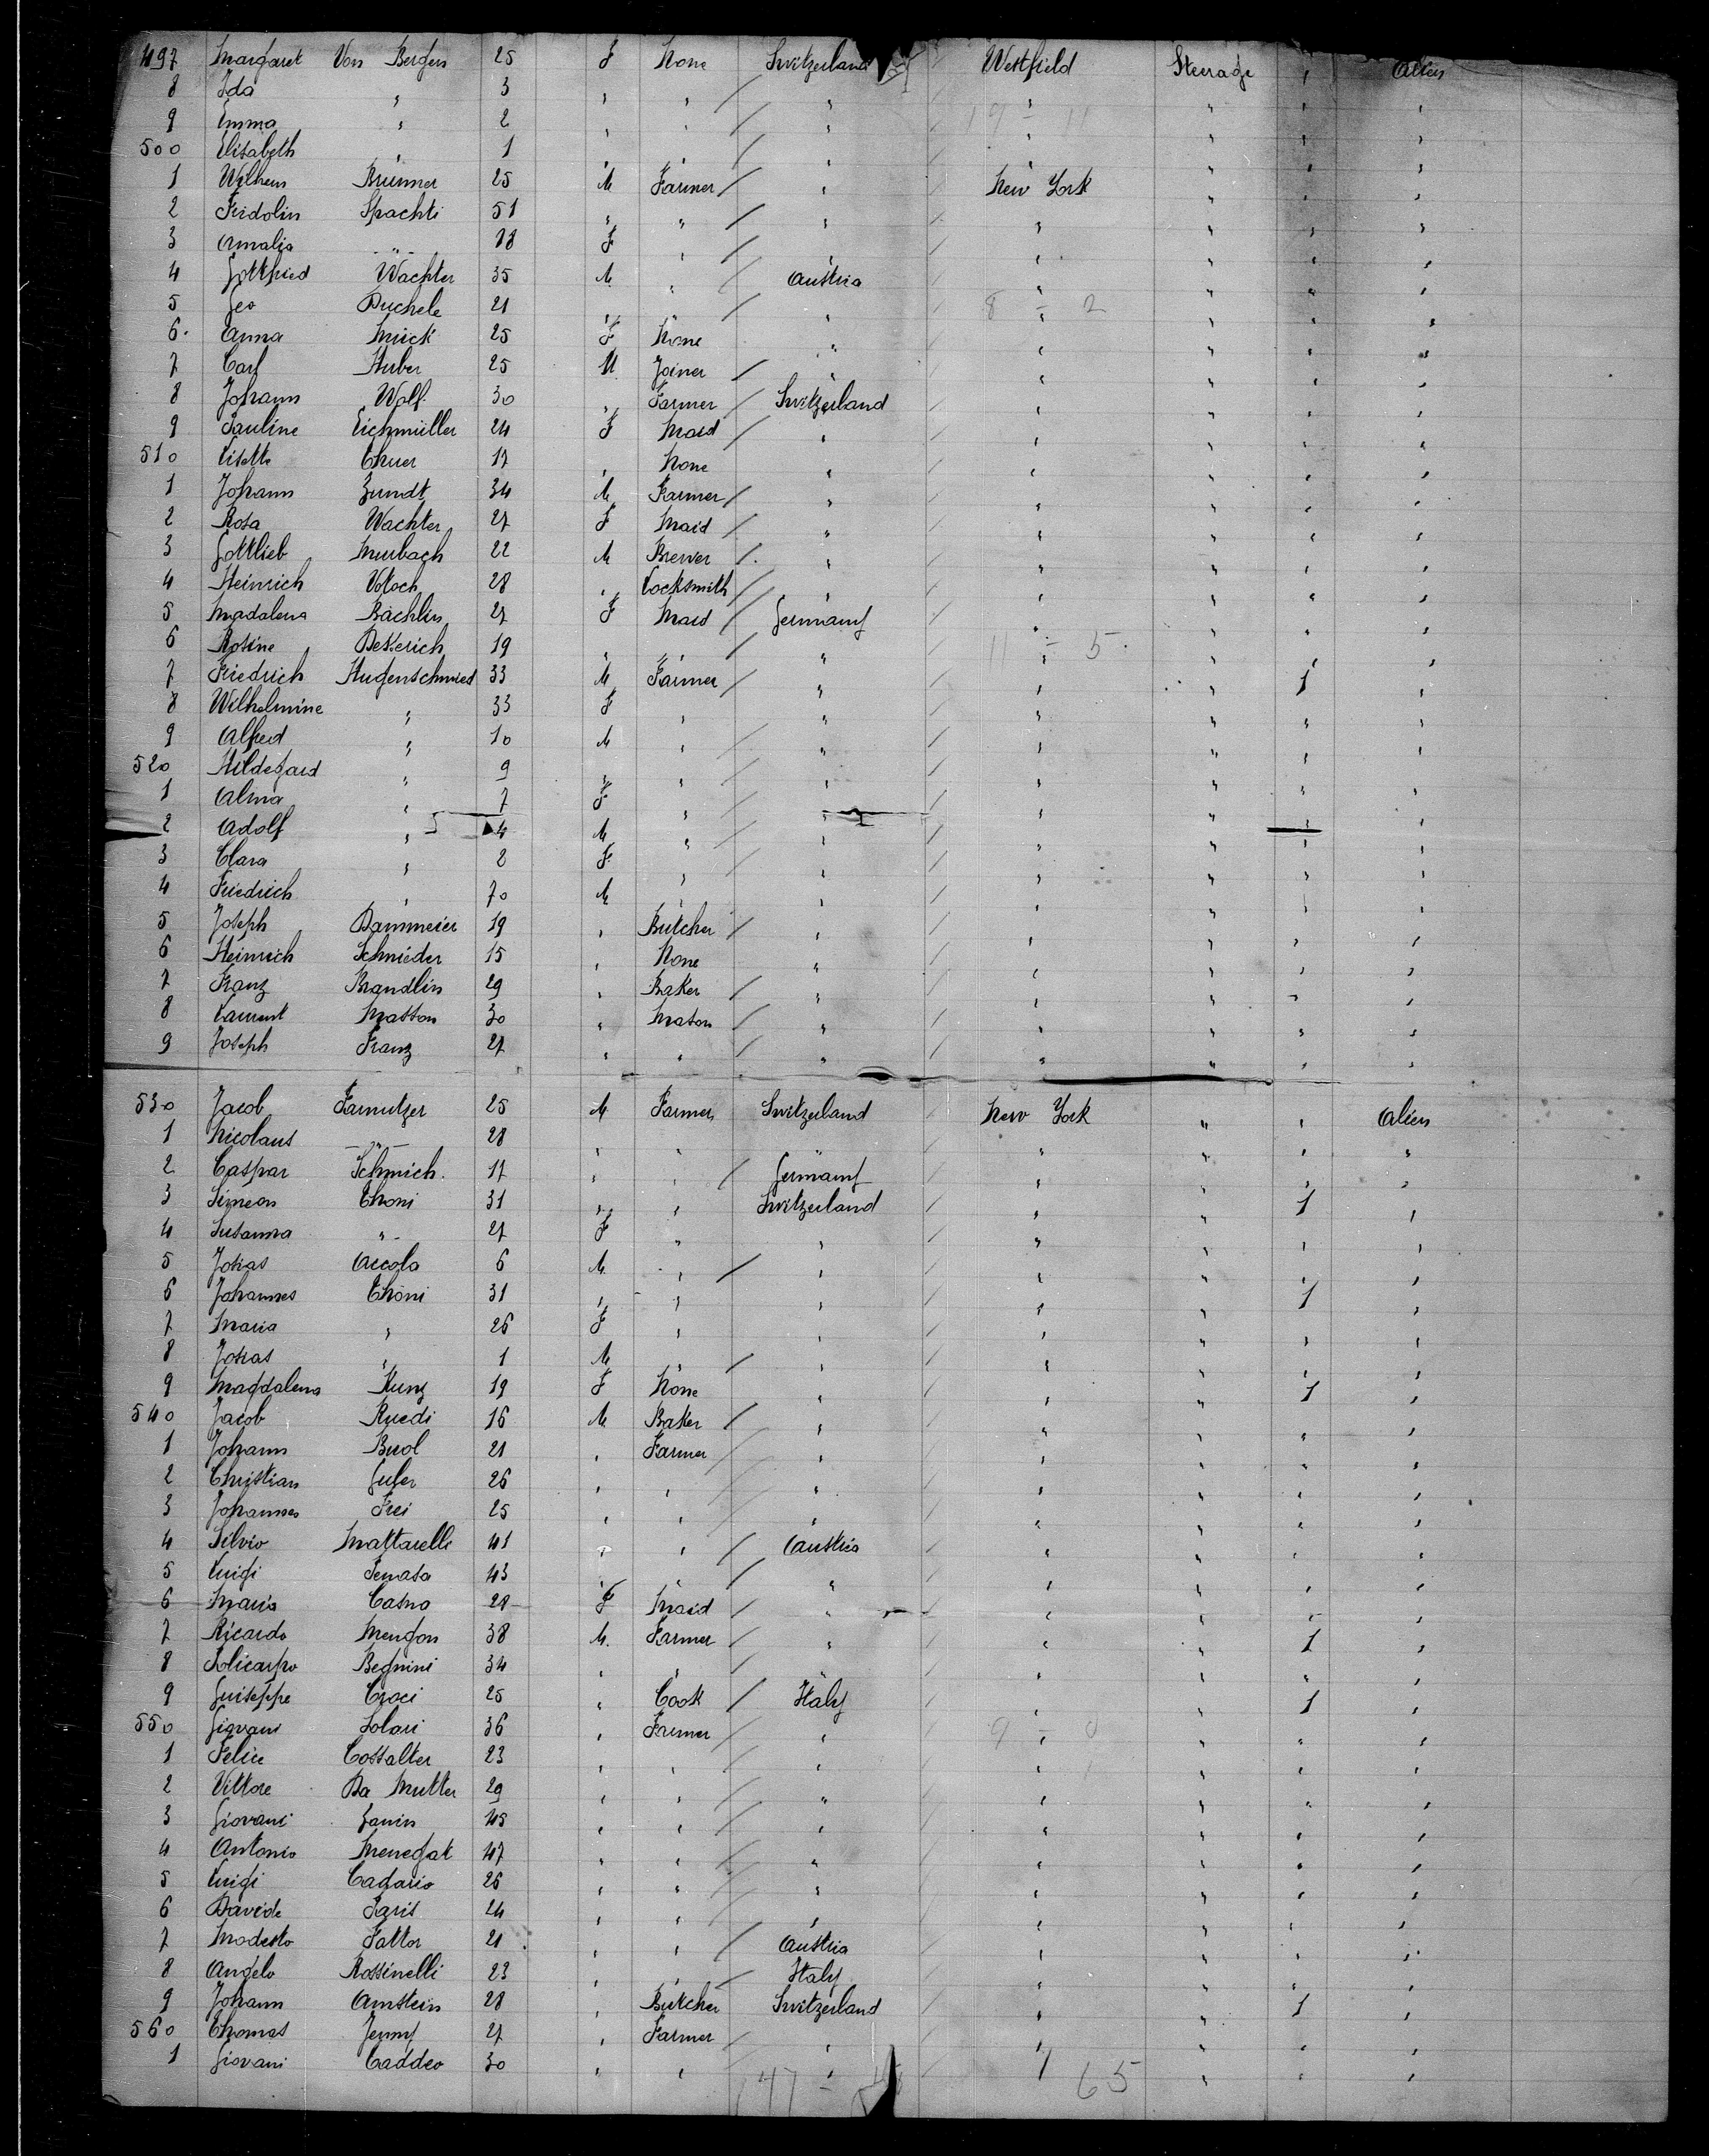 497 Margaret Von Bergen 25 F None Switzerland / Westfield Steerage " Alien
8 Ida " 3 " " / " / " " " "
9 Emma " 2 " " / " / " " " "
500 Elisabeth " 1 " " / " / " " " "
1 Wilhem Brunner 25 M Farmer / " / New York " " "
2 Fridolin Spachti 51 " " / " / " " " "
3 Amalia " 18 F " / " / " " " "
4 Gottfried Wachter 35 M " / Austria / " " " "
5 Geo Buchele 21 " " / " / " " " "
6 Anna Muick 25 F None " / " " " "
7 Carl Huber 25 M Joiner / " / " " " "
8 Johann Wolf 30 " Farmer / Switzerland / " " " "
9 Pauline Eichmüller 24 F Maid / " / " " " "
510 Lisette Thuer 17 " None " / " " " "
1 Johann Zundt 34 M Farmer / " / " " " "
2 Rosa Wachter 27 F Maid / " / " " " "
3 Gottlieb Murbach 22 M Brewer / " / " " " "
4 Heinrich Votoch 28 " Locksmith / " / " " " "
5 Madalena Bächlin 27 F Maid / Germany / " " " "
6 Rosine Bekerich 19 " " / " / " " " "
7 Friedrich Hugenschmied 33 M Farmer / " / " " 1 "
8 Wilhelmine " 33 F " " / " " " "
9 Alfred " 10 M " / " / " " " "
520 Hildegard " 9 " " / " / " " " "
1 Alma " 7 F " / " / " " " "
2 Adolf " 4 M " / " / " " " "
3 Clara " 2 F " / " / " " " "
4 Friedrich " 70 M " / " / " " " "
5 Joseph Dammeier 19 " Butcher / " / " " " "
6 Heinrich Schnieder 15 " None " / " " " "
7 Franz Brandlin 29 " Baker / " / " " " "
8 Laurent Masson 30 " Mason / " / " " " "
9 Joseph Franz 27 " " / " / " " " "
530 Jacob Farnutzer 25 M Farmer Switzerland / New York " " Alien
1 Nicolaus " 28 " " " / " " " "
2 Caspar Schmich 17 " " / Germany / " " " "
3 Simeon Thoni 31 " " Switzerland / " " 1 "
4 Susanna " 27 F " " / " " " "
5 Josias Accola 6 M " / " / " " " "
6 Johannes Thöni 31 " " " / " " 1 "
7 Maria " 26 F " " / " " " "
8 Josias " 1 M " / " / " " " "
9 Magdalena Kunz 19 F None " / " " 1 "
540 Jacob Ruedi 16 M Baker / " / " " " "
1 Johann Buol 21 " Farmer / " / " " " "
2 Christian Gufer 26 " " / " / " " " "
3 Johannes Frei 25 " " / " / " " " "
4 Silvio Mattarelli 41 " " / Austria / " " " "
5 Luigi Temasa 43 " " / " / " " " "
6 Maria Casna 28 F Maid / " / " " " "
7 Ricardo Mengon 38 M. Farmer / " / " " 1 "
8 Policarpo Begnini 34 " " / " / " " " "
9 Guiseppe Croci 25 " Cook / Italy / " " 1 "
550 Giovani Solari 36 " Farmer / " / " " " "
1 Felice Cossalter 23 " " / " / " " " "
2 Vittore Da Mutter 29 " " / " / " " " "
3 Giovani Zanin 45 " " / " / " " " "
4 Antonio Menegat 47 " " / " / " " " "
5 Luigi Cadario 26 " " / " / " " " "
6 Davide Paris 24 " " / " / " " " "
7 Modesto Fattor 21 " " / Austria / " " " "
8 Angelo Rossinelli 23 " " / Italy / " " " "
9 Johann Amstein 28 " Butcher Switzerland / " " 1 "
560 Thomas Jenny 27 " Farmer / " / " " " "
1 Giovani Caddeo 30 " " / " / " " " "
147 65